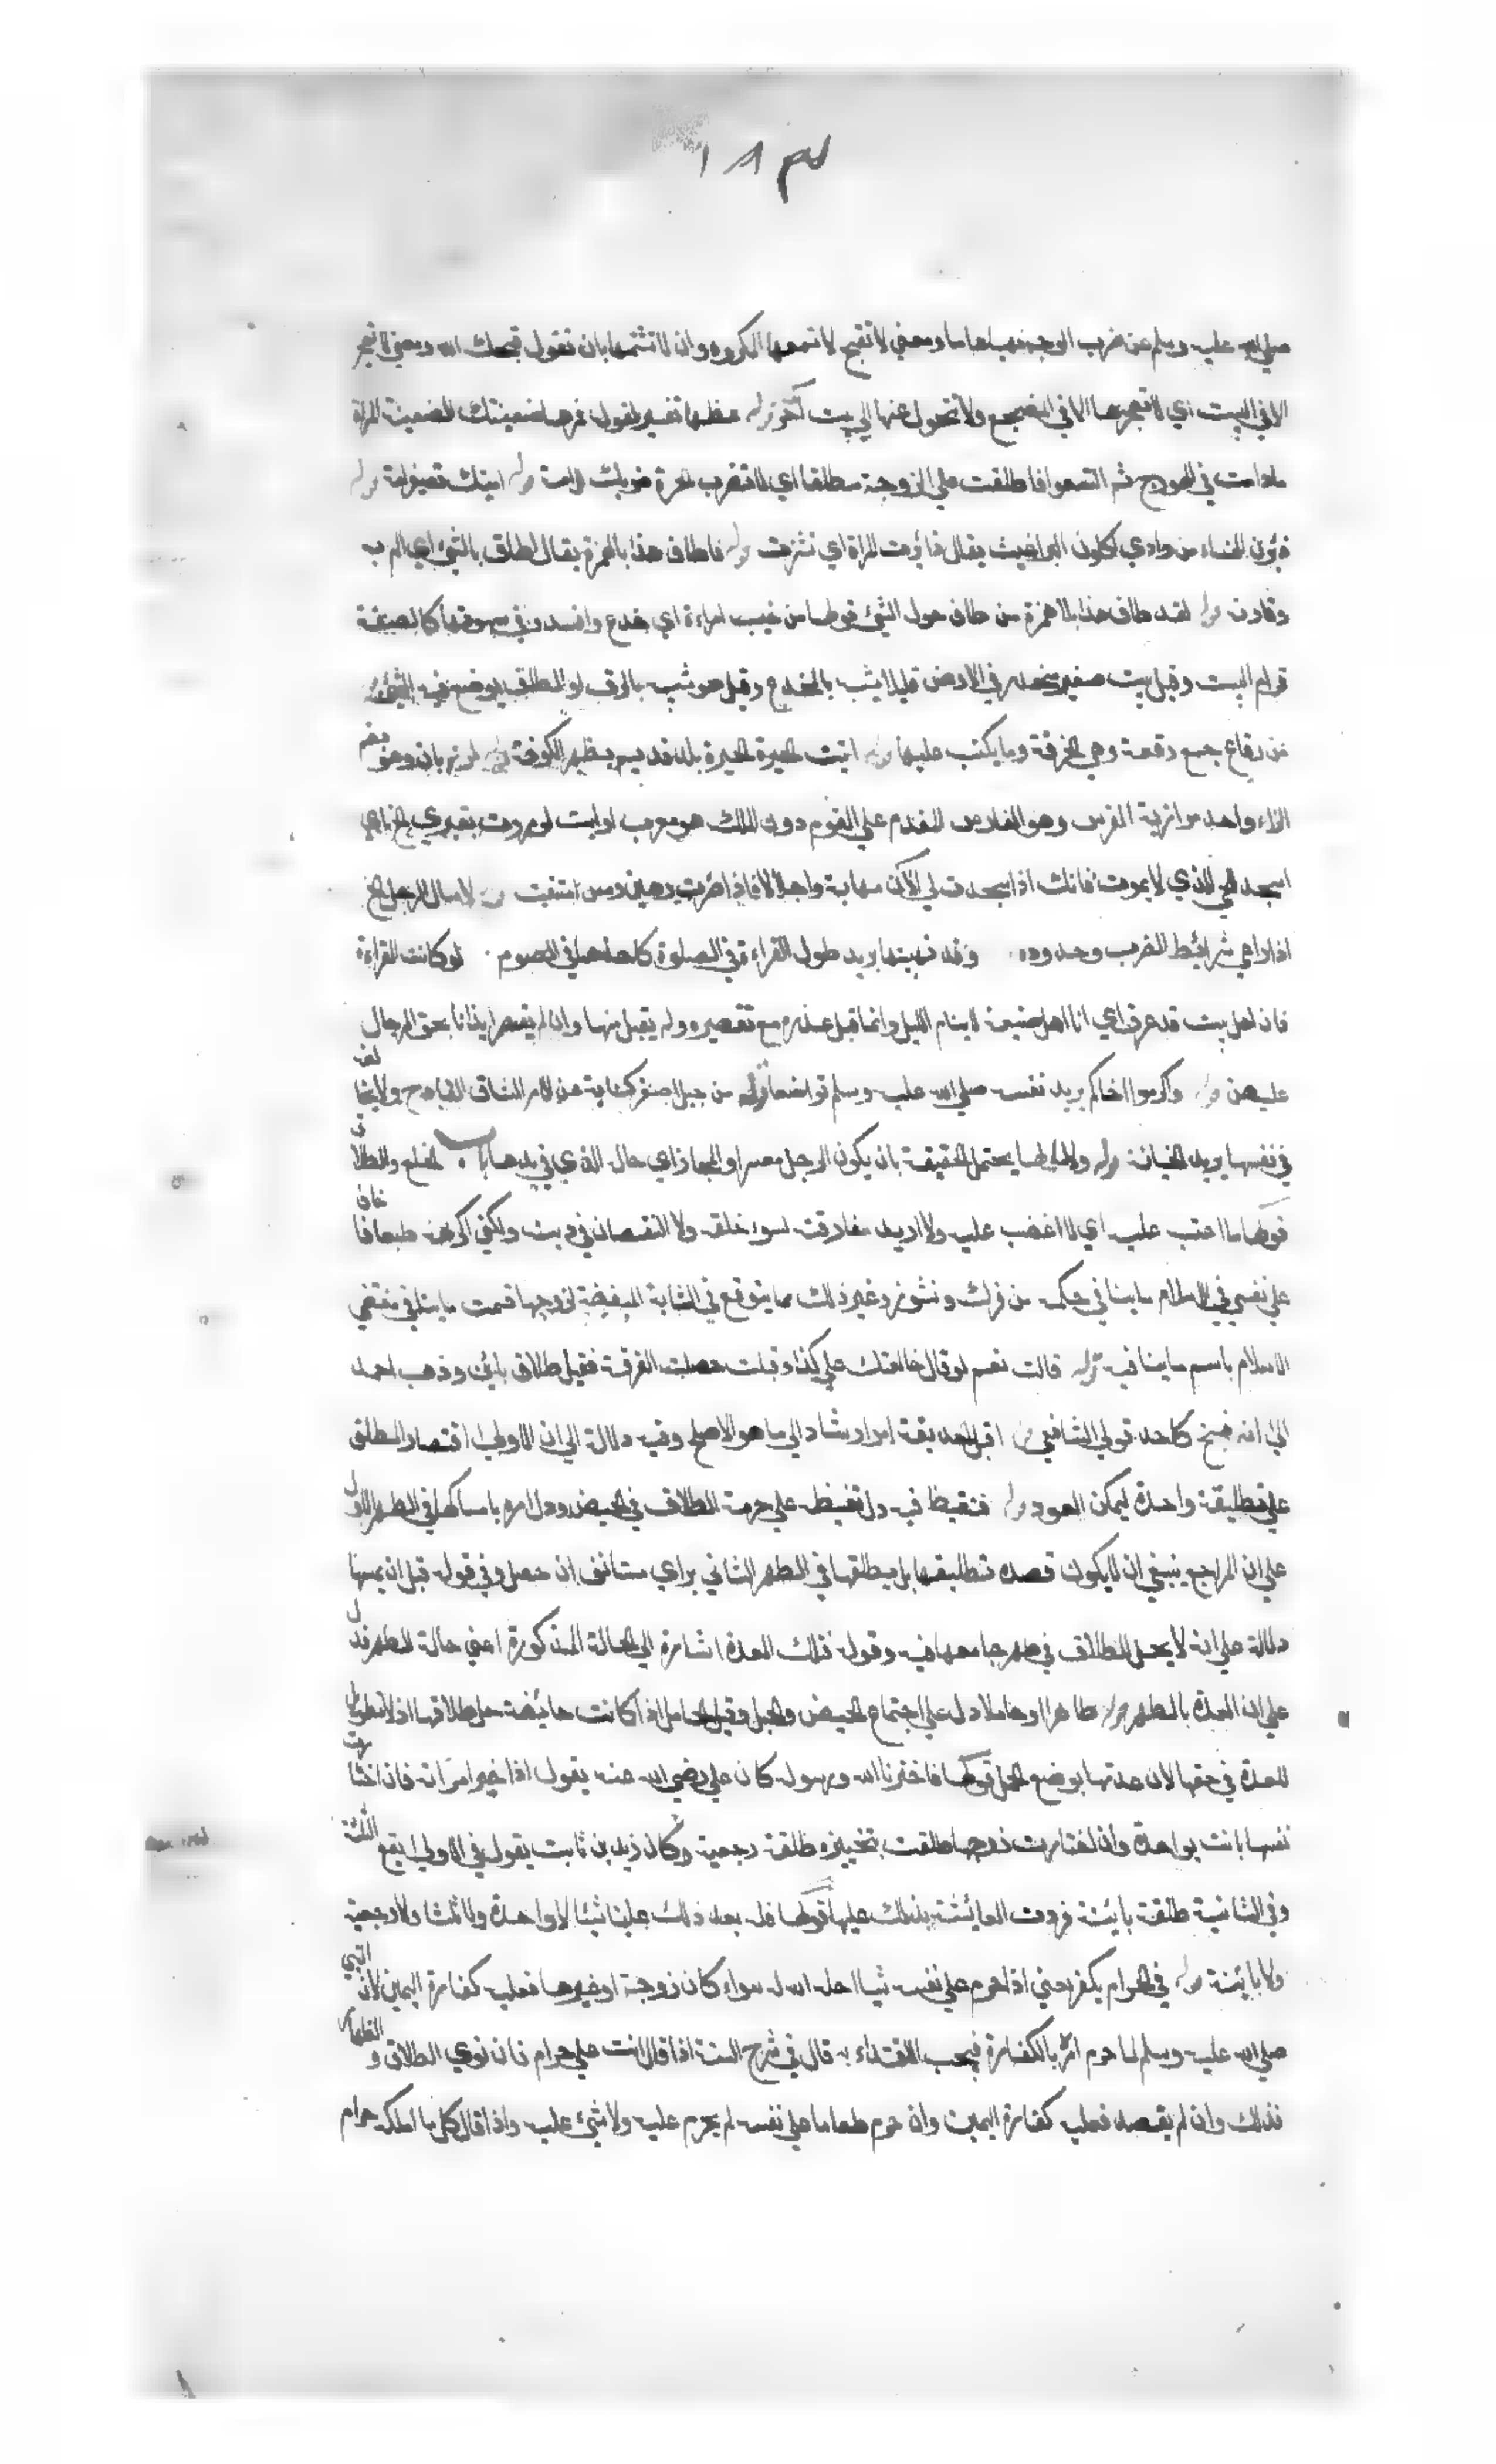 ١٨٣
صلى الله عليه وسلم عن ضرب الوجه نهيا عاما ومعنى لا تقبح لا تسمعها المكروه وان لا تشتمها بان تقول قبحك الله ومعنى لا تهجر
الا في البيت اي لا تهجرها الا في المضجع ولا تتحول عنها الي بيت آخر قوله عظها تفسير لقول مرها ضعينتك الضعينة المراة
مادامت في الهودج ثم اتسعوا فاطلقت علي الزوجة مطلقا اي لا تضرب الحرة ضربك الامة قوله اميتك تصغير امة قوله
ذئرن النساء من وادي اكلون البراغيث يقال ذائرت المراة اي نشزت قوله فاطاف هذا بالهمزة يقال اطاف بالشئ اي الم به
وقارنه قوله لقد طاف هذا بلا همزة من طاف حول الشئ قولها من خبب امراءة اي خدع وافسد وفي سهوتها كالصفة
قدام البيت وقيل بيت صغير منحدر في الارض قليلا يشبه بالمخدع وقيل هو شبيه بالرف او الطاق يوضع فيه الشئ
من رقاع جمع رقعة وهي الخرقة وما يكتب عليها قوله اتيت الحيرة الحيرة بلد قديم بظهر الكوفة قوله لمرزبان وهو بضم
الزاء واحد مرازبة الفرس وهو الفارس المقدم علي القوم دون الملك هو معرب ارايت لو مررت بقبري الخ اي
اسجد للحي الذي لا يموت فانك اذا سجدت لي الآن مهابة واجلالا فاذا صرت رهين رمس امتنعت قوله لا يسال الرجل الخ
اذا راعي شرائط الضرب وحدوده وقد نهيتها يريد طول القراءة في الصلوة كلها في الصوم لو كانت القراءة
فانا اهل بيت قد عرف اي انا اهل صنعة لا ينام الليل وانما قبل عذره مع تقصيره ولم يقبل منها وان لم يقصر ايذانا بحق الرجال
عليهن قوله واكرموا اخاكم يريد نفسه صلى الله عليه وسلم تواضعا قوله من جبل اصفر كناية عن الامر الشاق الفادح ولا تخالفه
في نفسها يريد الخيانة قوله ولا مالها يحتمل الحقيقة بان يكون الرجل معسرا والمجاز اي مال الذي في يدها باب الخلع والطلاق
قولها ما اعتب عليه اي لا اغضب عليه ولا اريد مفارقته لسوء خلقه ولا النقصان في دينه ولكني اكرهه طبعا فاخاف
علي نفسي في الاسلام ما ينافي حكمه من فرك ونشوز وغير ذلك مما يتوقع في الشابة المبغضة لزوجها فسمت ما ينافي مقتضي
الاسلام باسم ما ينافيه قوله قالت نعم لو قال خالعتك علي كذا وقبلت حصلت الفرقة فقيل طلاق بائن وذهب احمد
الي انه فسخ كاحد قولي الشافعي قوله اقبل الحديقة امر ارشاد الي ما هو الاصلح وفيه دلالة الي ان الاولي اقتصار المطلق
علي تطليقة واحدة ليمكن العود قوله فتغيظ فيه دل تغيظه علي حرمة الطلاق في الحيض ودل امره بامساكها في الطهر الاول
علي ان المراجع ينبغي ان لا يكون قصده تطليقها بل يطلقها في الطهر الثاني براي مستانف ان حصل وفي قوله قبل ان يمسها
دلالة علي انه لا يحل الطلاق في طهر جامعها فيه وقوله فتلك العدة اشارة الي الحالة المذكورة اعني حالة الطهر فدل
علي ان العدة بالطهر قوله طاهرا او حاملا دل علي اجتماع الحيض والحبل وقيل الحامل اذا كانت حائضة حل طلاقها اذ لا تطويل
للعدة في حقها لان عدتها بوضع الحمل قولها فاخترنا الله ورسوله كان علي رضي الله عنه يقول اذا خير امراته فان اختارت
نفسها بانت بواحدة وان اختارت زوجها طلقت بتخييره طلقة رجعية وكان زيد بن ثابت يقول في الاولي يقع الثلثة
وفي الثانية طلقة بائنة فردت العائشة بذلك عليها قولها فلم يعد ذلك علينا شيئا لا واحدة ولا ثلثا ولا رجعية
ولا بائنة قوله في الحرام يكفر يعني اذا حرم علي نفسه شيئا احل الله له سواء كان زوجة او غيرها فعليه كفارة اليمين لان النبي
صلى الله عليه وسلم لما حرم امر بالكفارة فيجب الاقتداء به قال في شرح السنة اذا قال انت علي حرام فان نوي الطلاق والظهار
فذلك وان لم يقصد فعليه كفارة اليمين وان حرم طعاما علي نفسه لم يحرم عليه ولا شئ عليه واذا قال كل ما املكه حرام